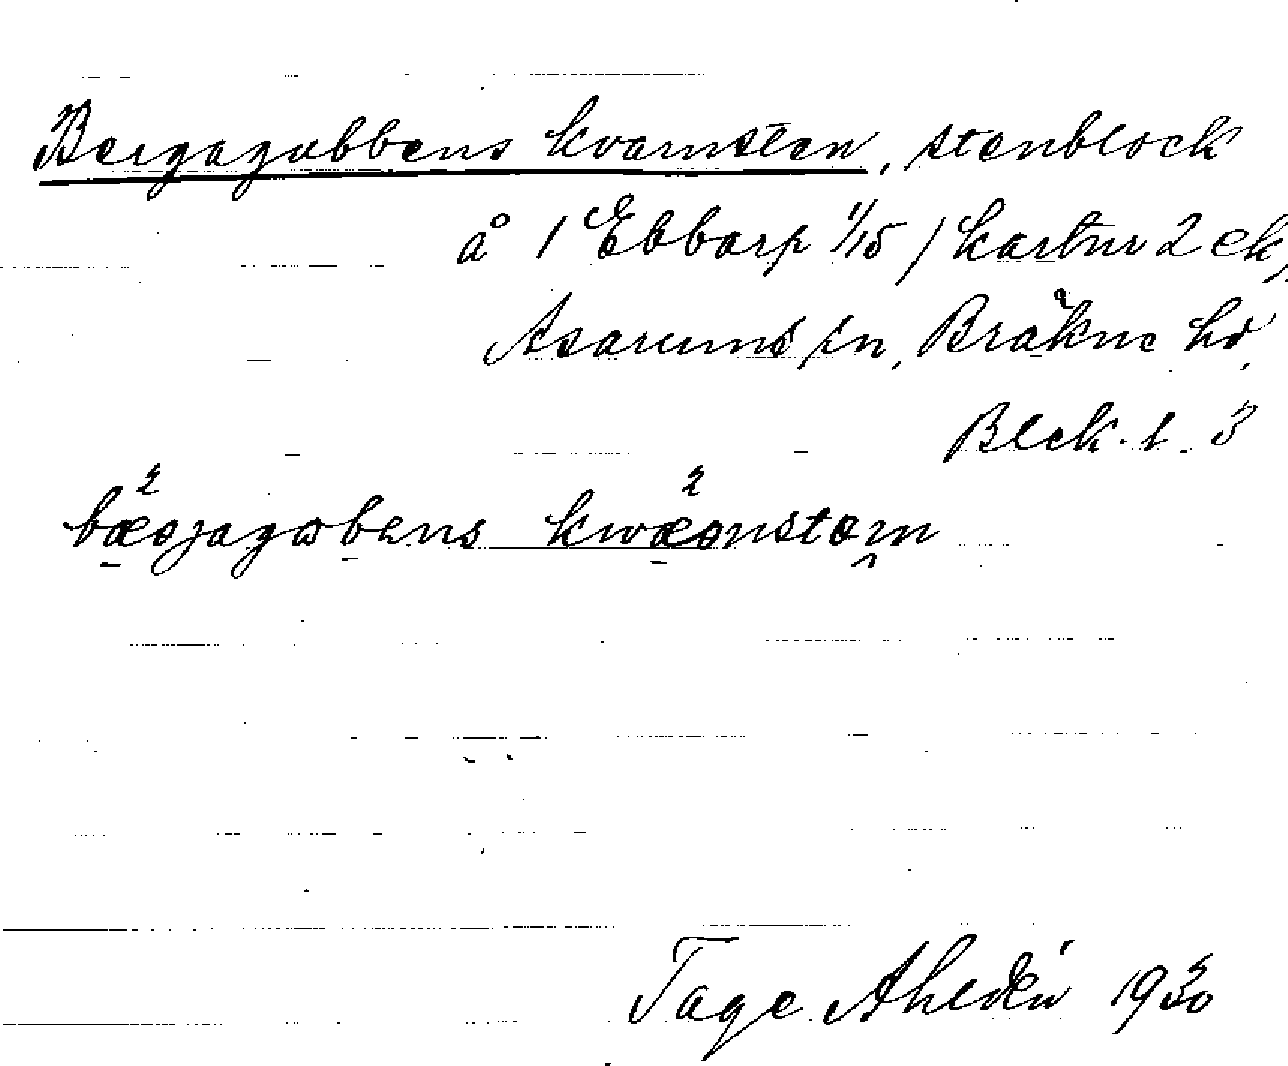 Bergagubbens kvarnsten, stenblock
å 1 Ebbarp 1/15 / kartnr 2 ek,
Asarums sn, Bräkne hd,
Blek. l. 3
bæojagɷbens kwæonstæin
Tage Ahldén 1930